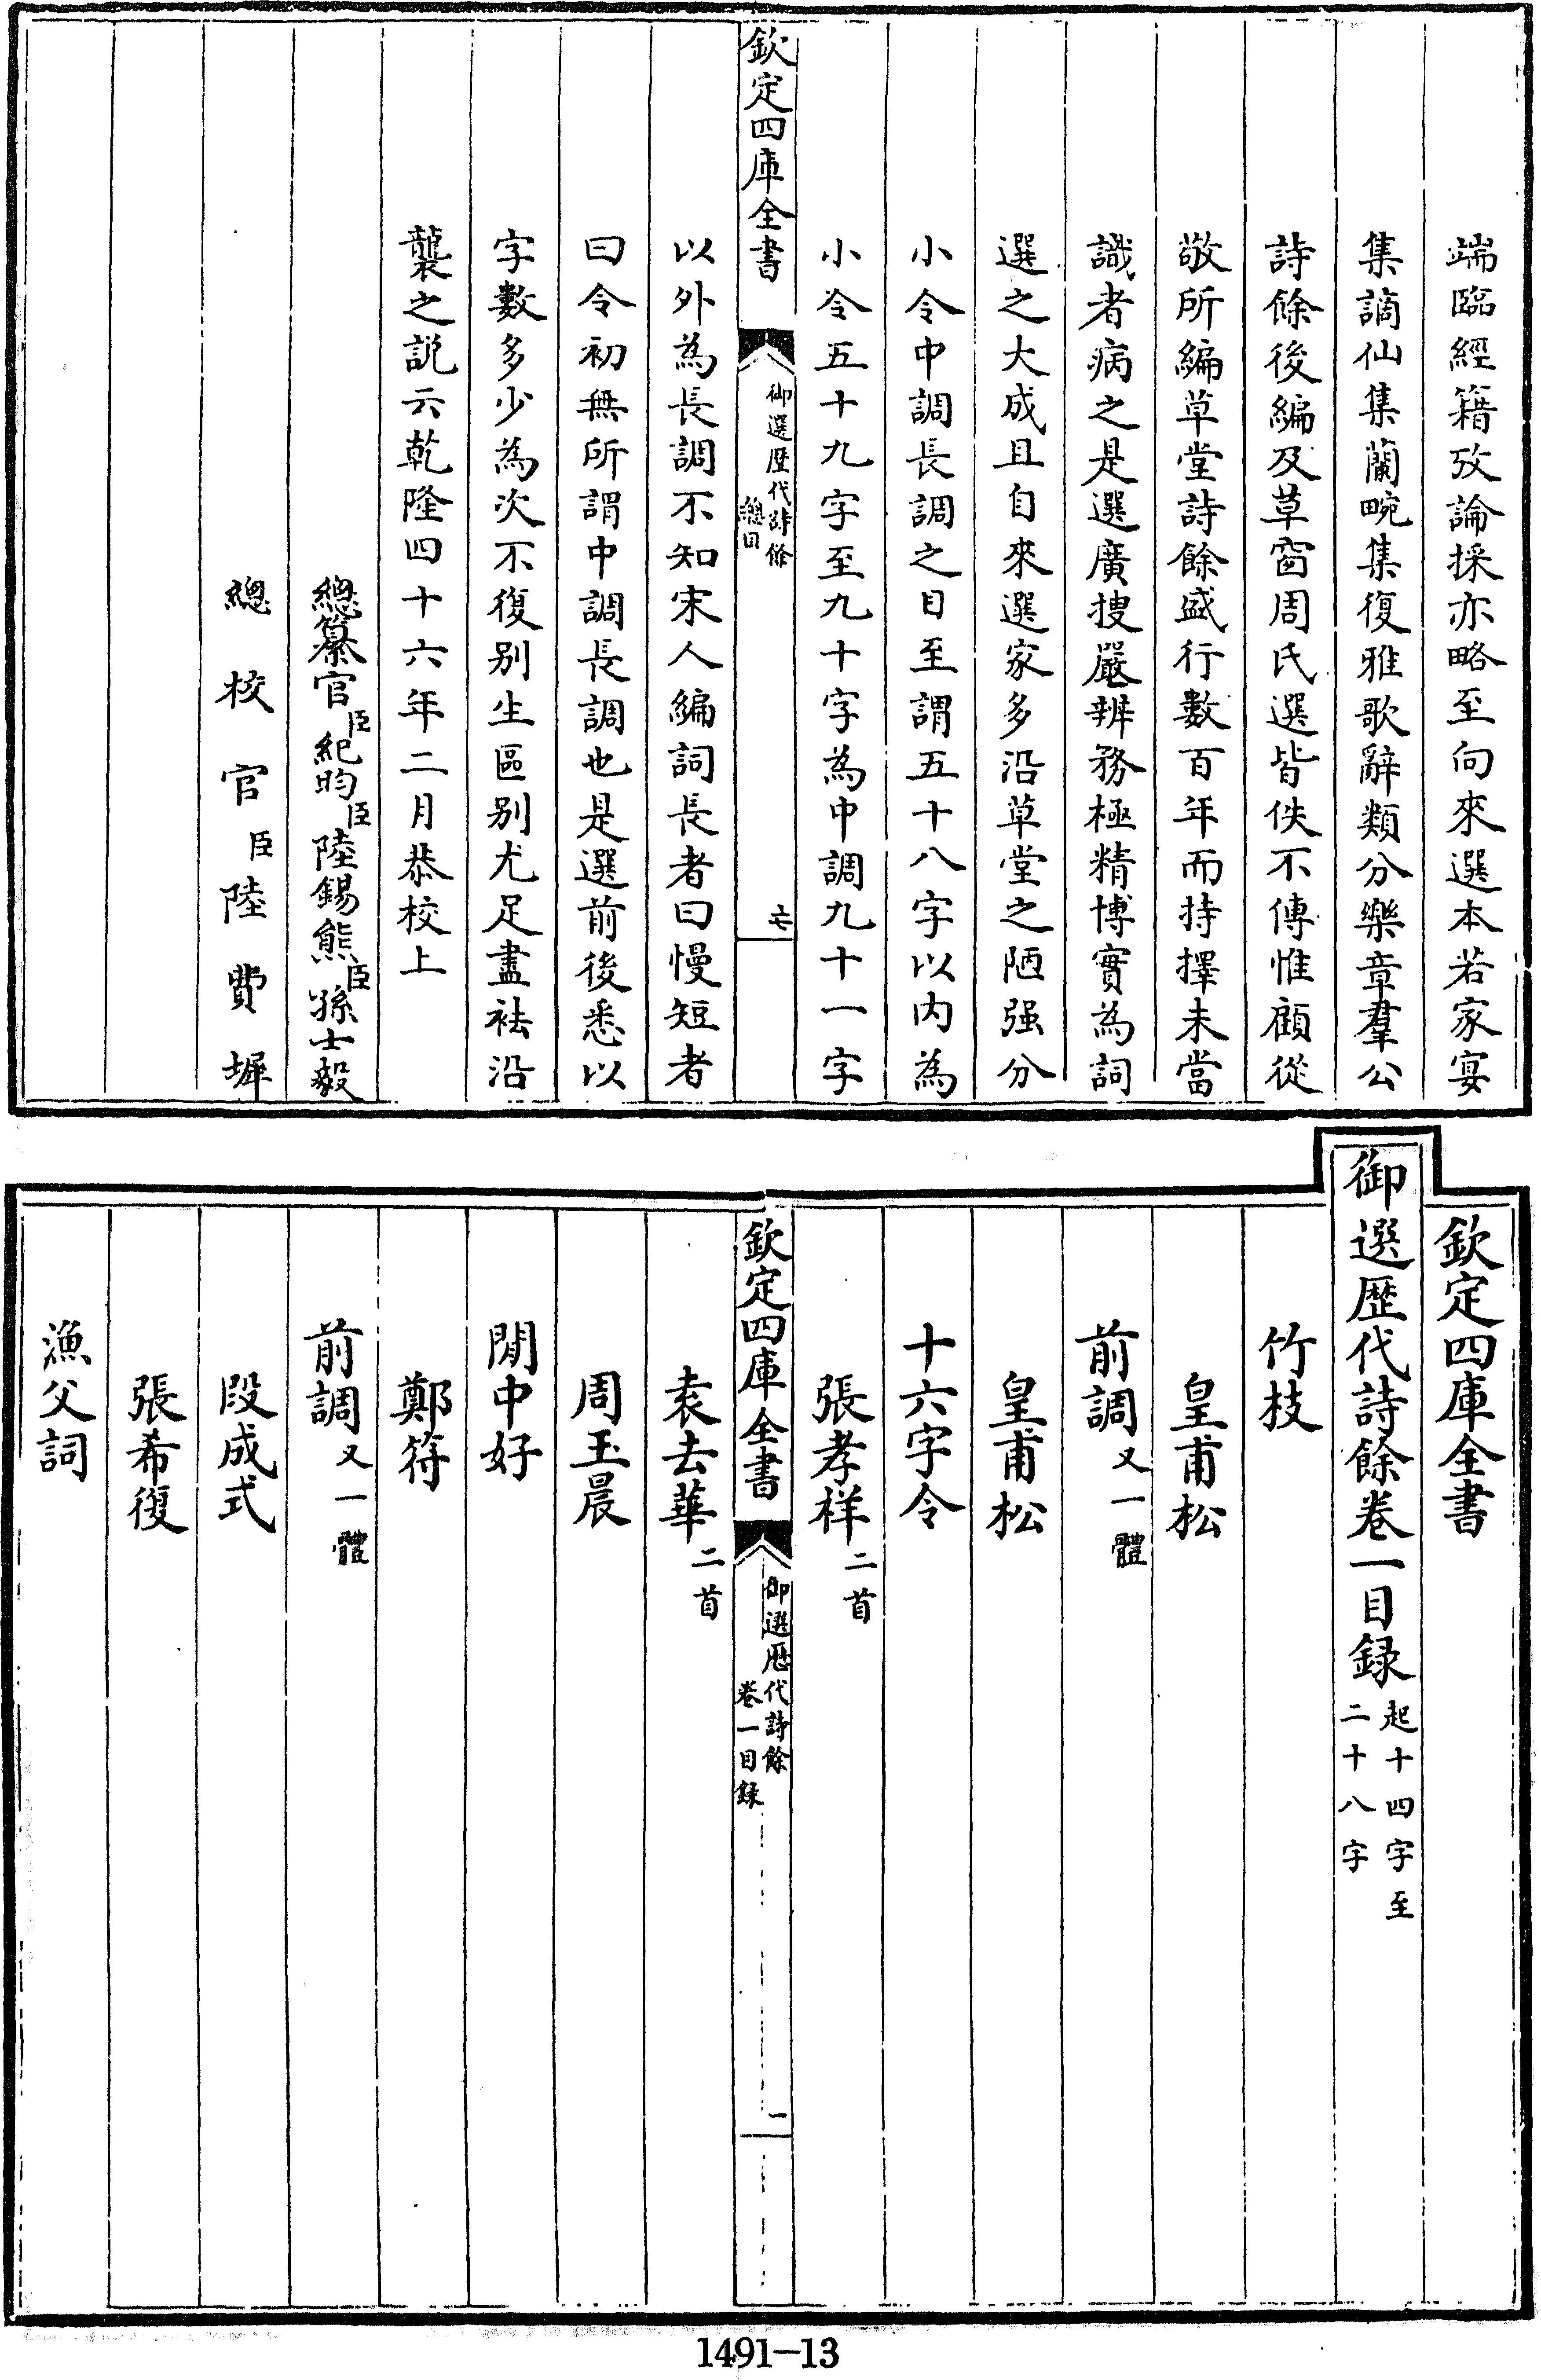 端臨經籍攷論採亦略至向來選本若家宴
集謫仙集蘭畹集復雅歌辭類分樂章羣公
詩餘後編及草窗周氏選皆佚不傳惟顧從
敬所編草堂詩餘盛行數百年而持擇未當
識者病之是選廣捜嚴辨務極精博實為詞
選之大成且自來選家多沿草堂之陋强分
小令中調長調之目至謂五十八字以内為
小令五十九字至九十字為中調九十一字
欽定四庫全書
御選歴代詩餘
總目
以外為長調不知宋人編詞長者曰慢短者
曰令初無所謂中調長調也是選前後悉以
字數多少為次不復别生區别尤足盡袪沿
襲之説云乾隆四十六年二月恭校上
總纂官臣紀昀臣陸錫熊臣孫士毅
總校官臣陸費墀
欽定四庫全書
御選歴代詩餘卷一目録起十四字至
二十八字
竹枝
皇甫松
前調又一體
皇甫松
十六字令
張孝祥二首
欽定四庫全書
御選歴代詩餘
卷一目録
一
袁去華二首
周玉晨
閒中好
鄭符
前調又一體
段成式
張希復
漁父詞
1491-13